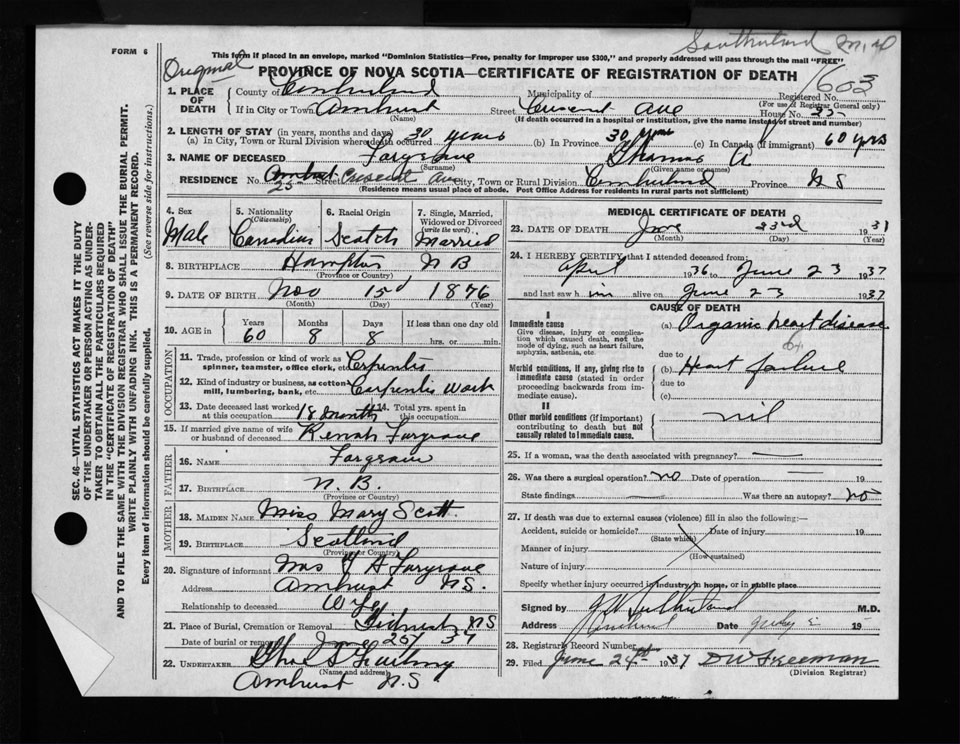 FORM 6
This form if placed in an envelope, marked "Dominion Statistics—Free, penalty for improper use $300," and properly addressed will pass through the mail "FREE"
Original
PROVINCE OF NOVA SCOTIA—CERTIFICATE OF REGISTRATION OF DEATH
603
1. PLACE OF DEATH
County of Cumberland Municipality of Registered No.
(For use of Registrar General only)
If in City or Town Amherst Street Crescent Ave House No. 25
(Name) (If death occurred in a hospital or institution, give the name instead of street and number)
2. LENGTH OF STAY (in years, months and days)
(a) In City, Town or Rural Division where death occurred 30 years (b) In Province 30 years (c) In Canada (if immigrant) 60 yrs
3. NAME OF DECEASED Fargrave Thomas A
(Surname) (Given name or names)
RESIDENCE No. 25 Street Crescent Ave City, Town or Rural Division Cumberland Province N S
Amherst
(Residence means usual place of abode. Post Office Address for Residents in rural parts not sufficient)
4. Sex
Male
5. Nationality (Citizenship)
Canadian
6. Racial Origin
Scotch
7. Single, Married, Widowed or Divorced (write the word)
Married
8. BIRTHPLACE Hampton N B
(Province or Country)
9. DATE OF BIRTH Nov 15d 1876
(Month) (Day) (Year)
10. AGE in
Years 60
Months 8
Days 8
If less than one day old
hrs. or min.
OCCUPATION
11. Trade, profession or kind of work as spinner, teamster, office clerk, etc. Carpenter
12. Kind of industry or business, as cotton mill, lumbering, bank, etc. Carpenter Work
13. Date deceased last worked at this occupation 18 month
14. Total yrs. spent in this occupation
15. If married give name of wife or husband of deceased Fargrave
FATHER
16. NAME Fargrave
17. BIRTHPLACE N. B.
(Province or Country)
MOTHER
18. MAIDEN NAME Miss Mary Scott
19. BIRTHPLACE Scotland
(Province or Country)
20. Signature of informant Mrs A Fargrave
Address Amherst N S.
Relationship to deceased Wife
21. Place of Burial, Cremation or Removal NS
Date of burial or removal June 25/37
22. UNDERTAKER
(Name and address)
Amherst N.S.
MEDICAL CERTIFICATE OF DEATH
23. DATE OF DEATH June 23rd 1937
(Month) (Day) (Year)
24. I HEREBY CERTIFY that I attended deceased from
April 1936 to June 23 1937
and last saw him alive on June 23 1937
CAUSE OF DEATH
I
Immediate cause
Give disease, injury or complication which caused death, not the mode of dying, such as heart failure, asphyxia, asthenia, etc.
(a) Organic heart disease
due to
Morbid conditions, if any, giving rise to immediate cause (stated in order proceeding backwards from immediate cause).
(b) Heart failure
due to
(c)
II
Other morbid conditions (if important) contributing to death but not causally related to immediate cause.
nil
25. If a woman, was the death associated with pregnancy?
26. Was there a surgical operation? no Date of operation 19
State findings Was there an autopsy? no
27. If death was due to external causes (violence) fill in also the following:—
Accident, suicide or homicide? Date of injury 19
(State which)
Manner of injury
(How sustained)
Nature of injury
Specify whether injury occurred in industry, in home, or in public place.
Signed by Sutherland M.D.
Address Amherst Date July 19
28. Registrar's Record Number
29. Filed June 24th 1937 D W Freeman
(Division Registrar)
SEC. 46—VITAL STATISTICS ACT MAKES IT THE DUTY OF THE UNDERTAKER OR PERSON ACTING AS UNDERTAKER TO OBTAIN ALL THE PARTICULARS REQUIRED IN THE "CERTIFICATE OF REGISTRATION OF DEATH" AND TO FILE THE SAME WITH THE DIVISION REGISTRAR WHO SHALL ISSUE THE BURIAL PERMIT.
WRITE PLAINLY WITH UNFADING INK. THIS IS A PERMANENT RECORD.
Every item of information should be carefully supplied. (See reverse side for instructions.)